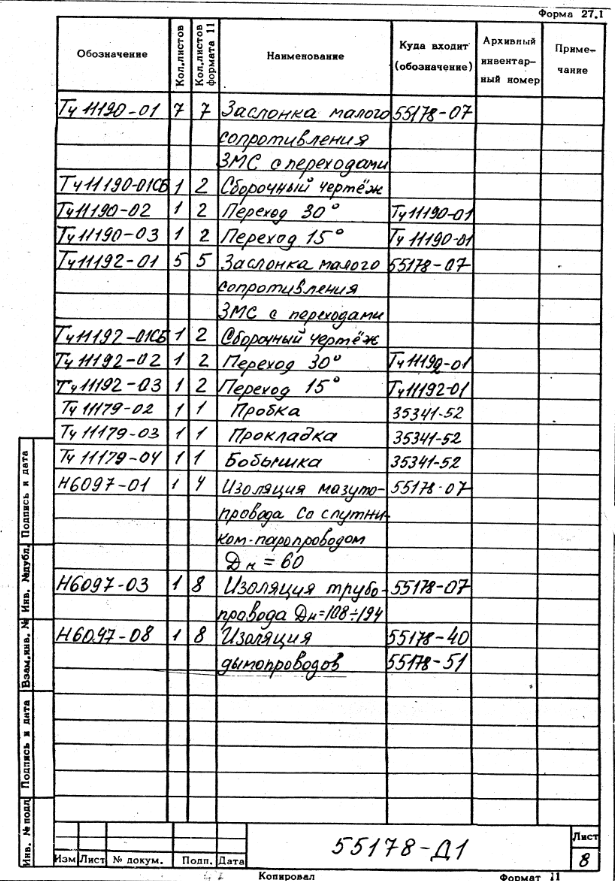 Форма 27.1
Обозначение Кол.листов Кол.листов формата 11 Наименование Куда входит (обозначение) Архивный инвентарный номер Примечание
Ту 11190-01 7 7 Заслонка малого 55178-07
сопротивления
ЗМС с переходами
Ту 11190-01СБ 1 2 Сборочный чертёж
Ту 11190-02 1 2 Переход 30° Ту 11190-01
Ту 11190-03 1 2 Переход 15° Ту 11190-01
Ту 11192-01 5 5 Заслонка малого 55178-07
сопротивления
ЗМС с переходами
Ту 11192-01СБ 1 2 Сборочный чертёж
Ту 11192-02 1 2 Переход 30° Ту 11192-01
Ту 11192-03 1 2 Переход 15° Ту 11192-01
Ту 11179-02 1 1 Пробка 35341-52
Ту 11179-03 1 1 Прокладка 35341-52
Ту 11179-04 1 1 Бобышка 35341-52
Н6097-01 1 4 Изоляция мазуто- 55178-07
провода со спутни
ком-паропроводом
Дн = 60
Н6097-03 1 8 Изоляция трубо- 55178-07
провода Дн=108÷194
Н6097-08 1 8 Изоляция 55178-40
дымопроводов 55178-51
Инв. № подл. Подпись и дата Взам.инв. № Инв. №дубл. Подпись и дата
55178-Д1
Лист
8
Изм Лист № докум. Подп. Дата
Копировал Формат 11